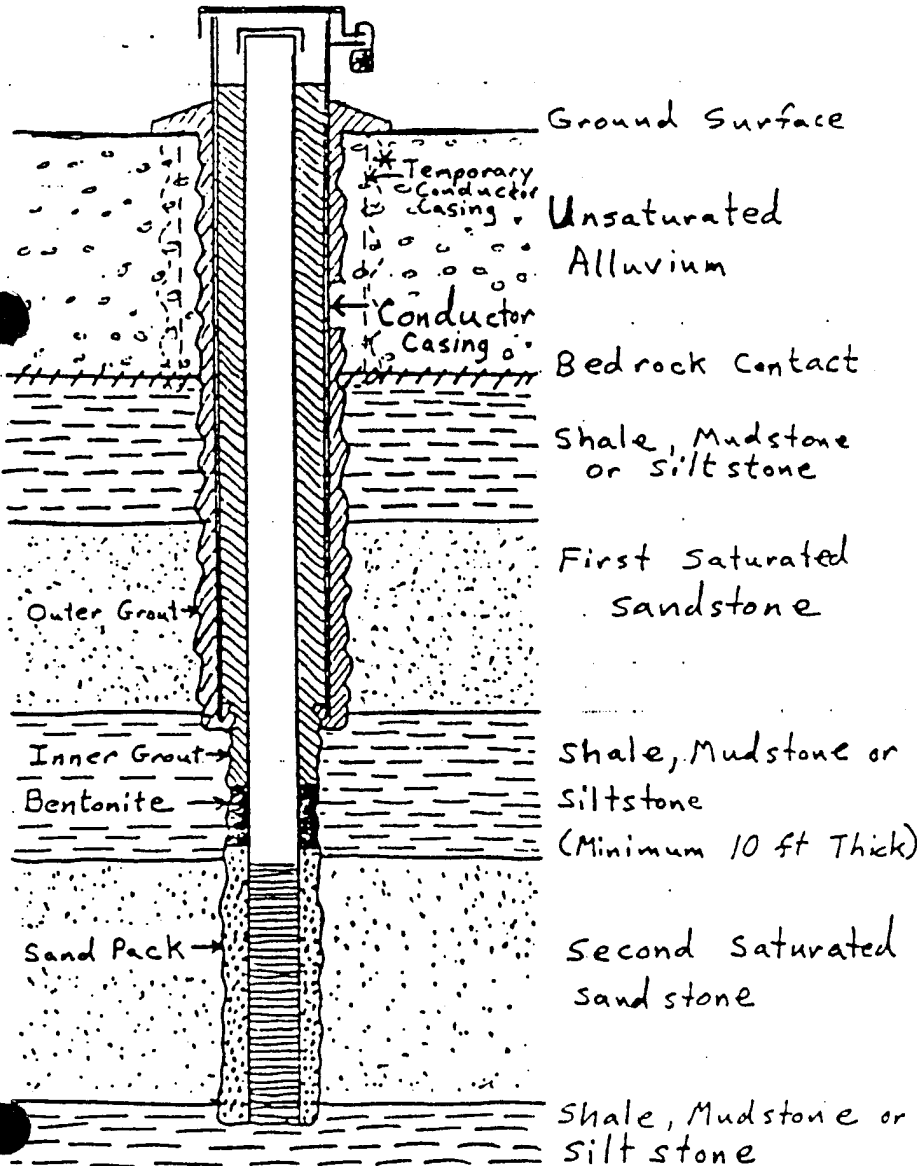 Ground Surface
* Temporary
Conductor
Casing
Unsaturated
Alluvium
Conductor
Casing
Bedrock Contact
Shale, Mudstone
or Siltstone
First Saturated
Sandstone
Outer Grout
Inner Grout
Bentonite
Shale, Mudstone or
Siltstone
(Minimum 10 ft Thick)
Sand Pack
Second Saturated
Sandstone
Shale, Mudstone or
Siltstone